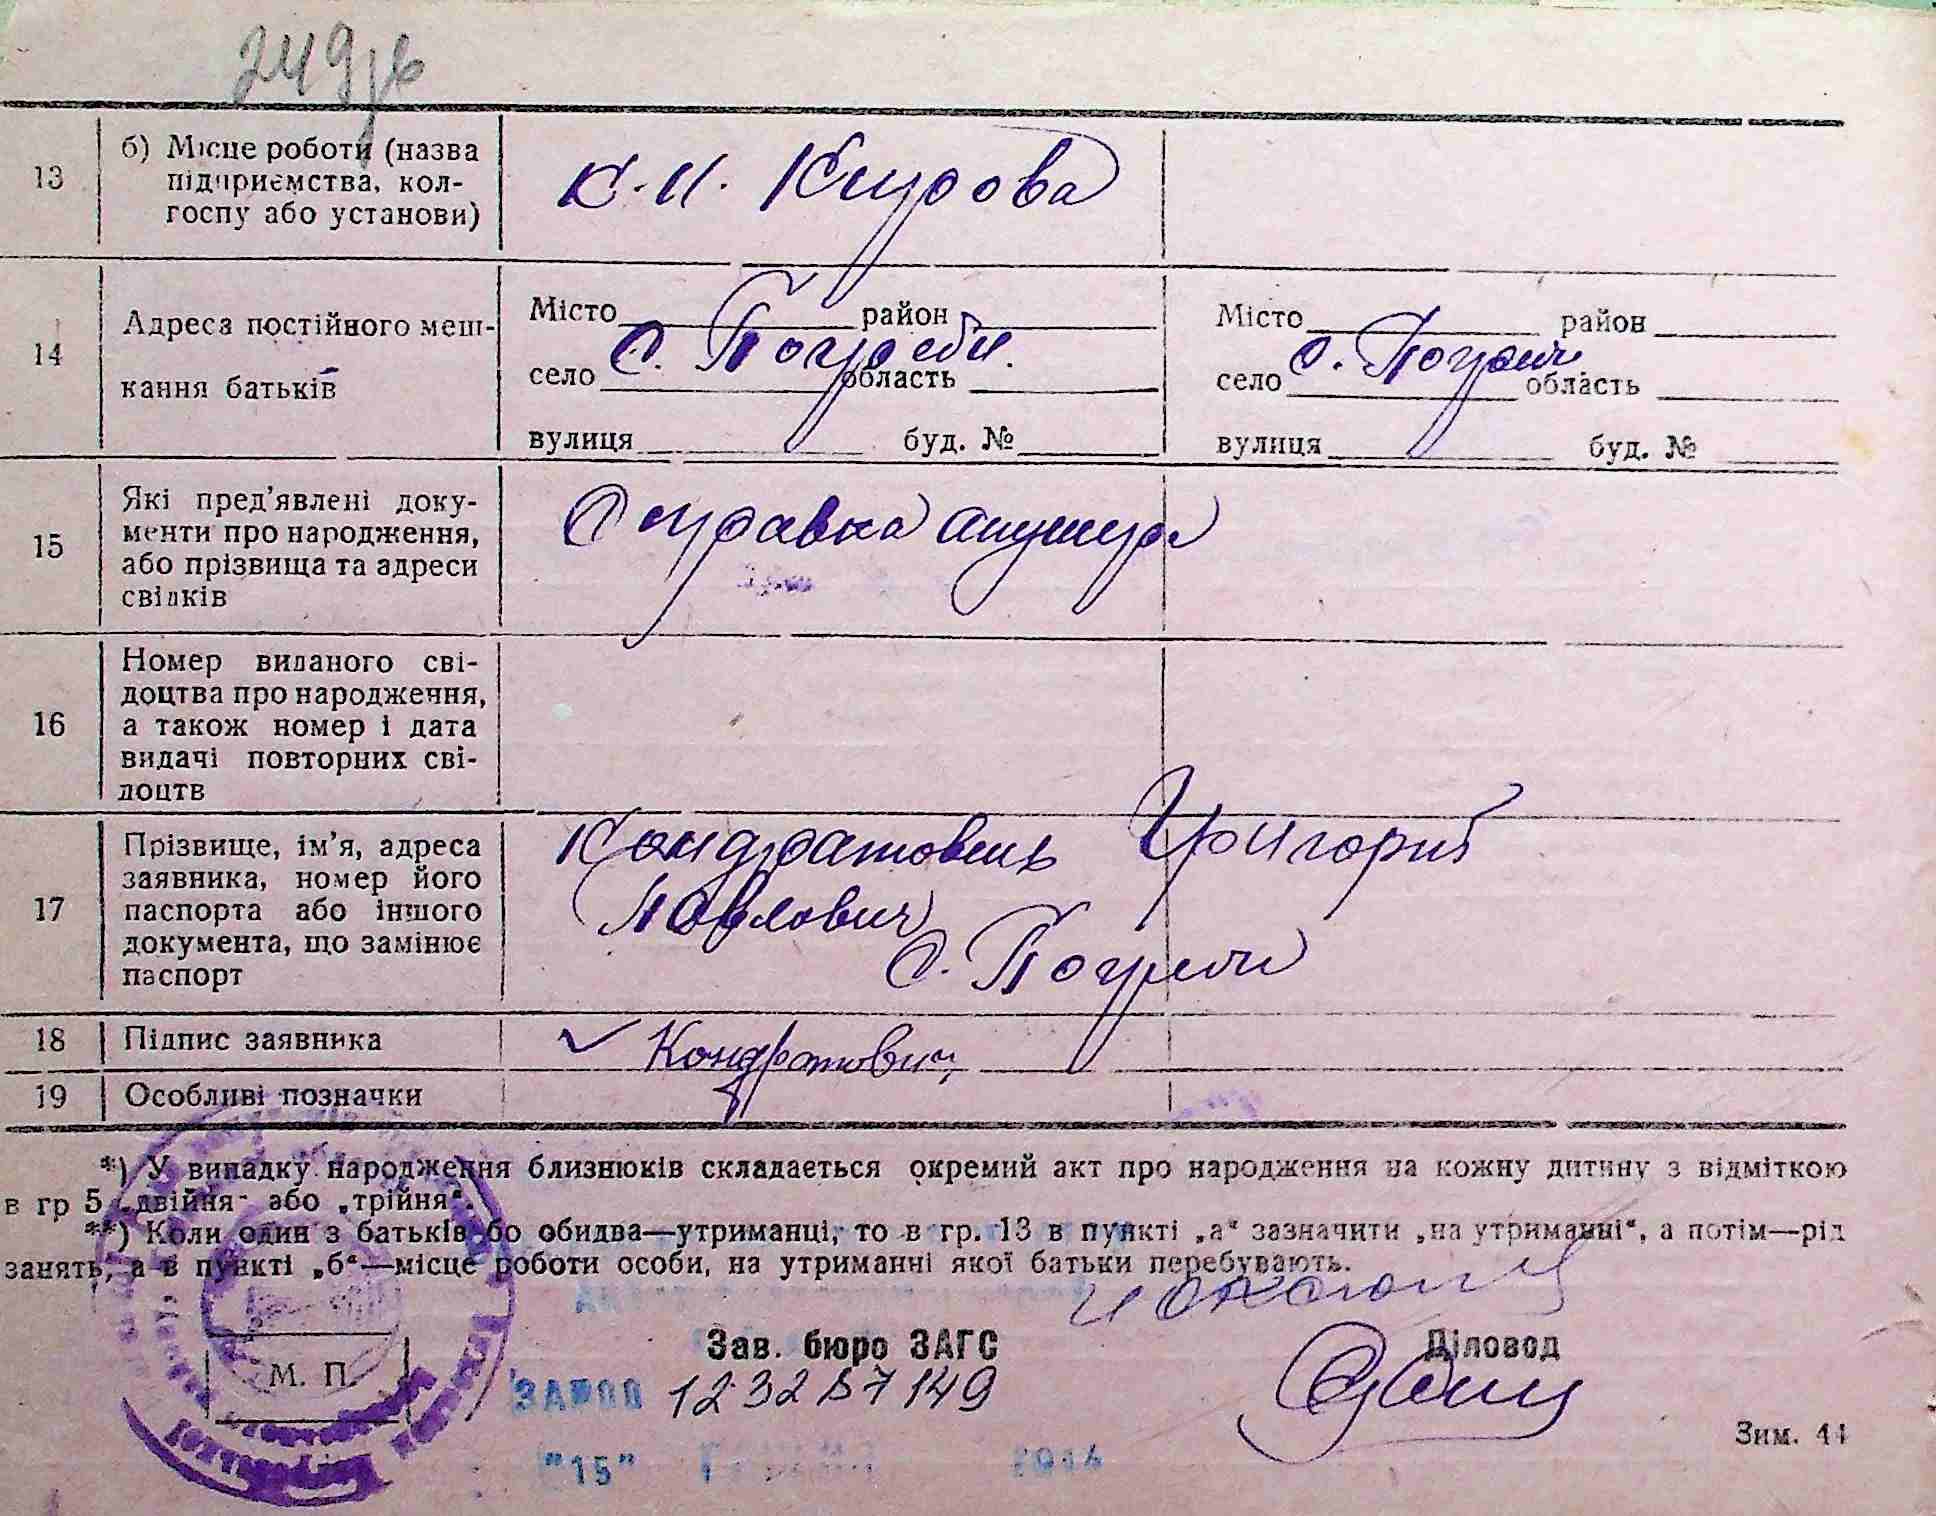 249
13
б) Місце роботи (назва
підприємства, кол-
госпу або установи)
К-п. Кирова
14
Адреса постійного меш-
кання батьків
Місто район
с. Погреби
село область
вулиця буд. №
Місто район
с. Погреби
село область
вулиця буд. №
15
Які пред'явлені доку-
менти про народження,
або прізвища та адреси
свідків
Справка акушера
16
Номер виданого сві-
доцтва про народження,
а також номер і дата
видачі повторних сві-
доцтв
17
Прізвище, ім'я, адреса
заявника, номер його
паспорта або іншого
документа, що замінює
паспорт
Кондратовець Григорий
Павлович
с. Погреби
18
Підпис заявника
Кондратович
19
Особливі позначки
*) У випадку народження близнюків складається окремий акт про народження на кожну дитину з відміткою
в гр 5 „двійня" або „трійня".
**) Коли один з батьків бо обидва—утриманці, то в гр. 13 в пункті „а" зазначити „на утриманні", а потім—рід
занять, а в пункті „б"—місце роботи особи, на утриманні якої батьки перебувають.
Зав. бюро ЗАГС
Діловод
М. П.
123257149
"15" 2014
Зим. 44